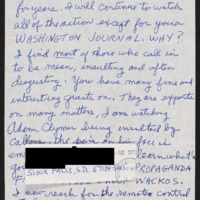 for years. I will continue to watch
all of the action except for your
WASHINGTON JOURNAL. WHY?
I find most of those who call in
to be mean, insulting and often
disgusting. You have many fine and
interesting guests on. They are experts
on many matters. I am watching
Adam Clymer being insulted by
callers, the pain in his face is
em learn what's
go PROPAGANDA
SIOUX FALLS, S.D.
of WACKOS.
I now reach for the remote control